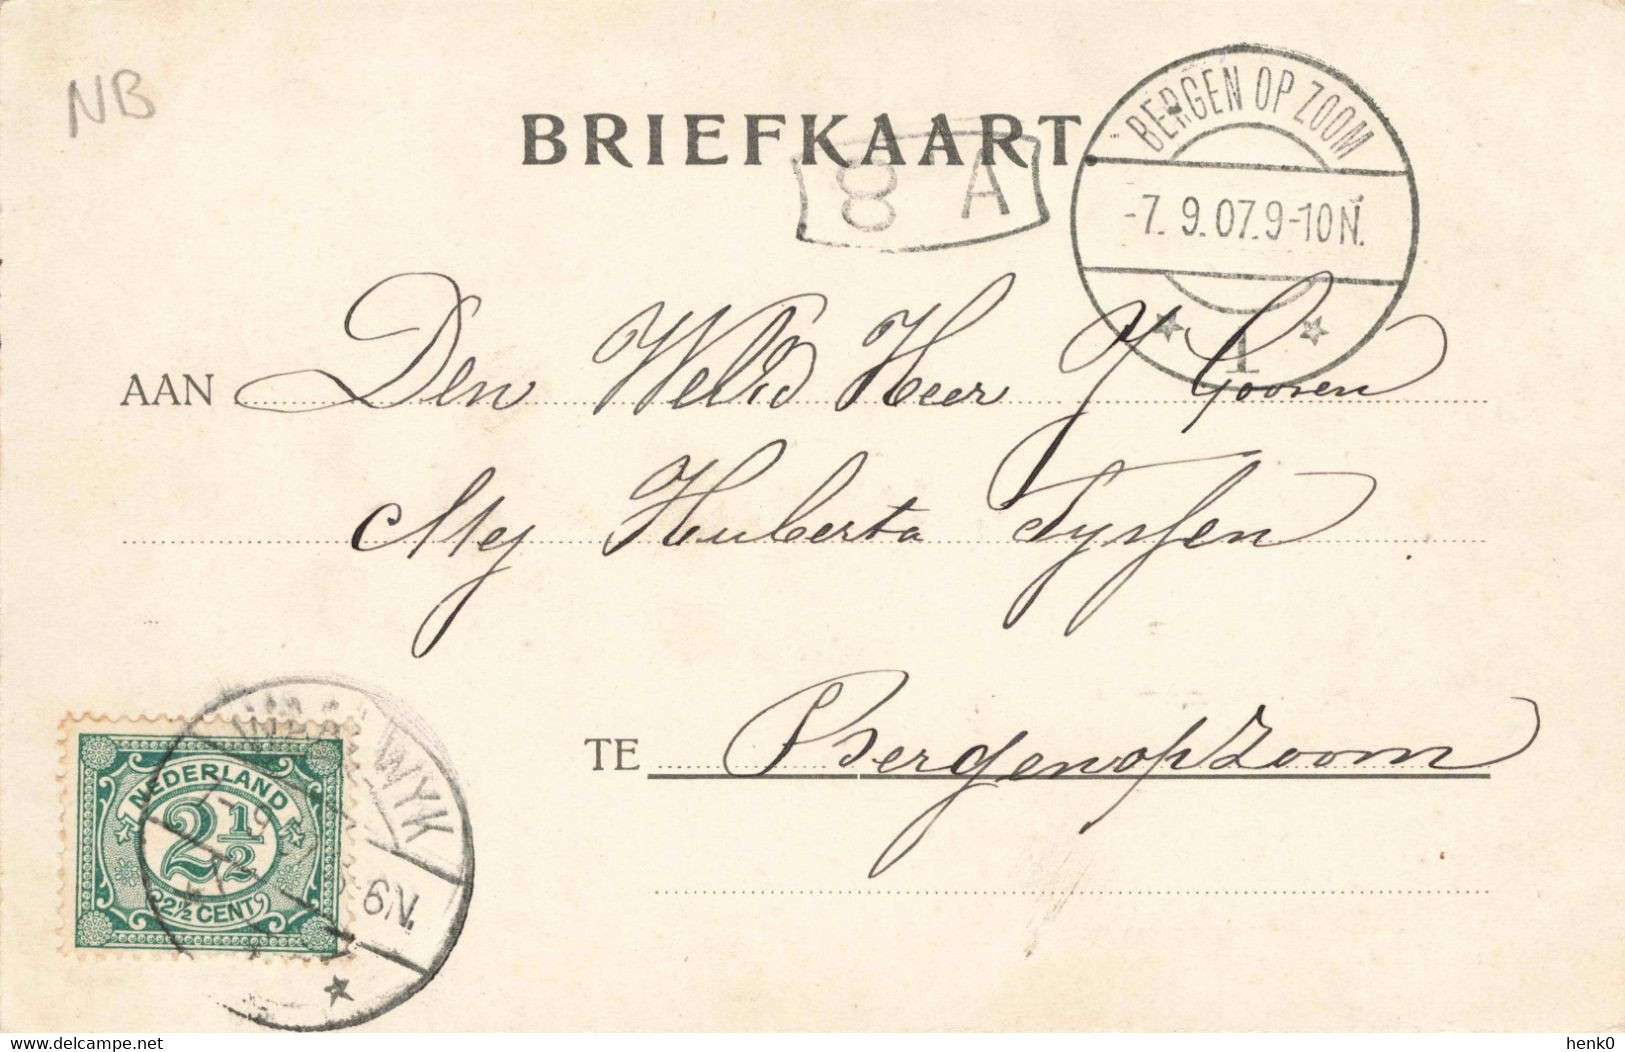 NB
BRIEFKAART.
8 A
BERGEN OP ZOOM
-7. 9. 07. 9-10 N.
1
AAN Den WelEd Heer J Goosen
Mej Huberta Tyssen
TE Bergenopzoom
WAALWYK
6N.
NEDERLAND
2 1/2
2½ CENT
www.delcampe.net
henk0